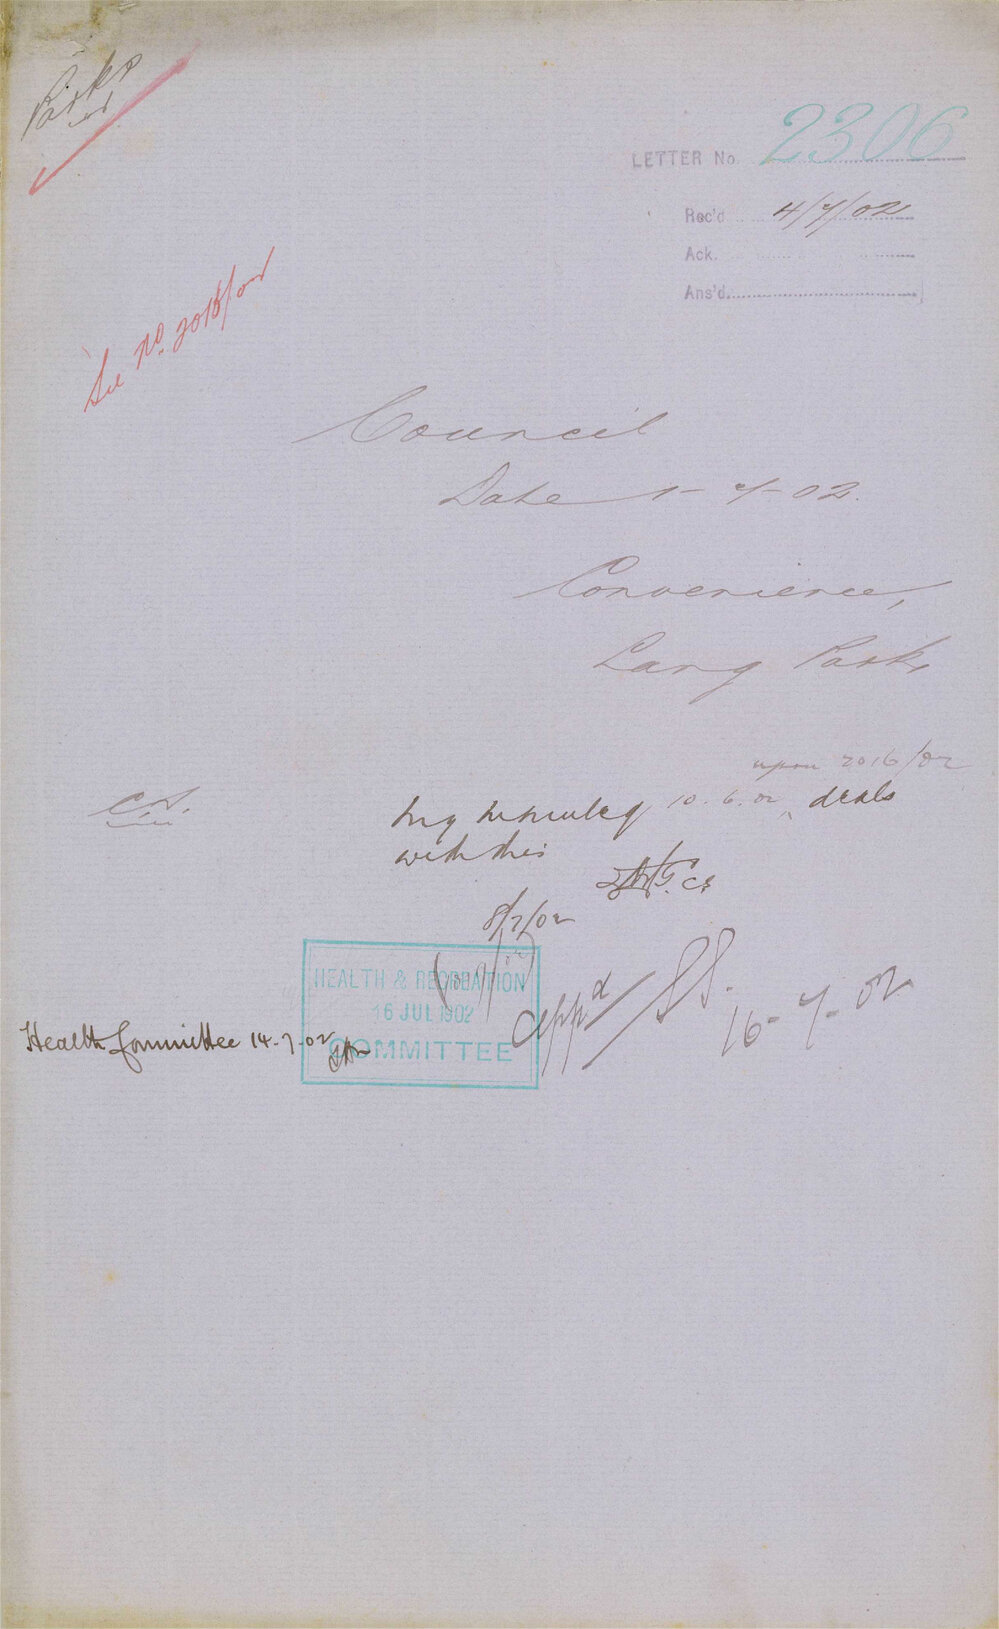 Parks
LETTER No. 2306
Rec'd 4/7/02
Ack.
Ans'd.
See No. 2016/02
Council
Date 1-7-02.
Convenience,
Lang Park,
upon 2016/02
C.S.
My minute of 10.6.02, deals
with this
C S
8/7/02
HEALTH & RECREATION
16 JUL 1902
COMMITTEE
Appd
16-7-02
Health Committee 14-7-02